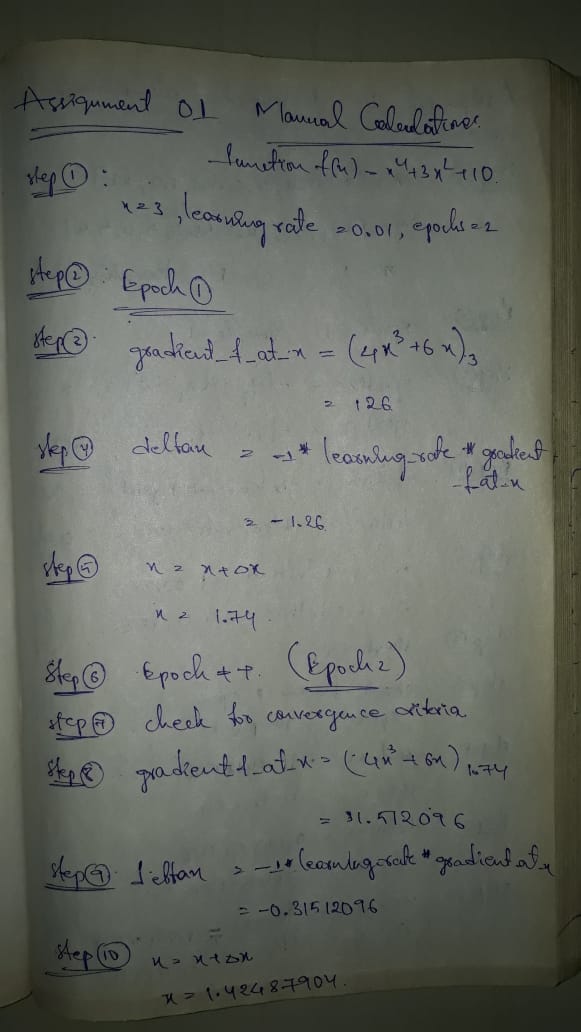 Assignment 01 Manual Calculations.
step ① : function f(x) - x⁴+3x²+10.
x=3, learning rate =0.01, epochs=2
step② : Epoch ①
step③. gradient_f_at_x = (4x³+6x)₃
= 126
step④ deltax = -1* learning_rate * gradient
_fat_x
= -1.26
step⑤ x = x+Δx
x = 1.74.
Step⑥ Epoch++. (Epoch2)
step⑦ check for convergence criteria
Step⑧ gradient f_at_x = (4x³+6x)₁.₇₄
= 31.512096
step⑨. deltax = -1* learning rate * gradient at_x
= -0.31512096
step⑩ x = x+Δx
x = 1.42487904.